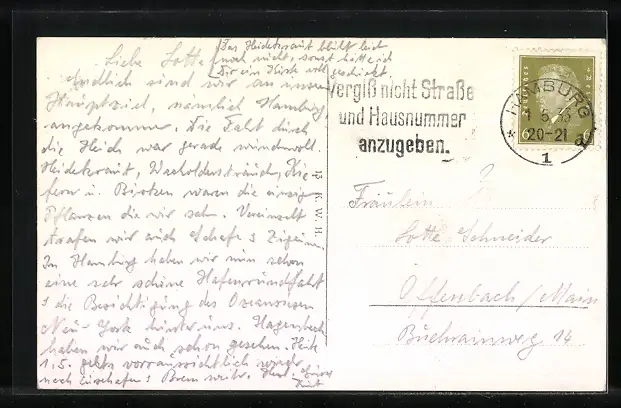 Das Heidekraut blüht leid
noch nicht, sonst hätte ich
Dir ein Kiste voll geschickt.
Liebe Lotte
Endlich sind wir an unser
Hauptziel, nämlich Hamburg,
angekommen. Die Fahrt durch
die Heide war gerade wundervoll.
Heidekraut, Wacholdersträuch, Kie
fern u. Birken waren die einzig
Pflanzen die wir sahn. Vereinzelt
trafen wir auch Schafe &
In Hamburg haben wir nun schon
eine sehr schöne Hafenrundfahrt
& die Besichtigung des Ozeanriesen
Neu-York hinter uns. Hagenbeck
haben wir auch schon gesehen. Heute
1.5. gehts voraussichtlich wieder
nach
P. K. W. H.
Vergiß nicht Straße
und Hausnummer
anzugeben.
HAMBURG
20-21
1
Deutsches Reich
6 6
Fräulein
Lotte Schneider
Offenbach/Main
Buchrainweg 14